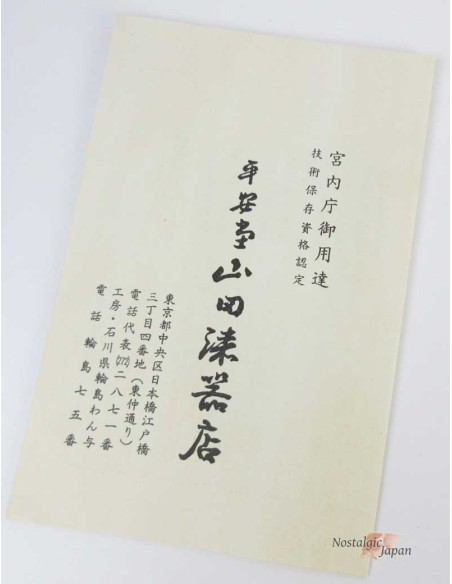 宮内庁御用達
技術保存資格認定
平安堂山田漆器店
東京都中央区日本橋江戸橋
三丁目四番地(東仲通り)
電話代表(272)二八七一番
工房・石川県輪島わん与
電話輪島七五番
Nostalgic
Japan